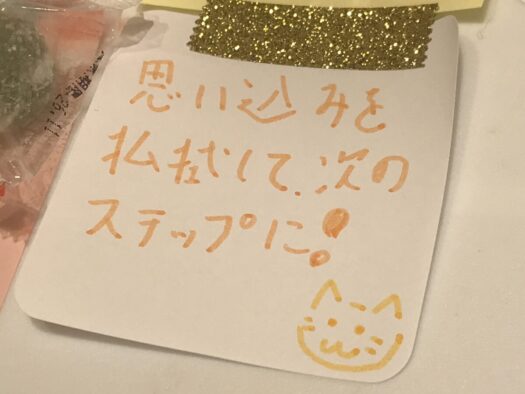 思い込みを
払拭して、次の
ステップに!